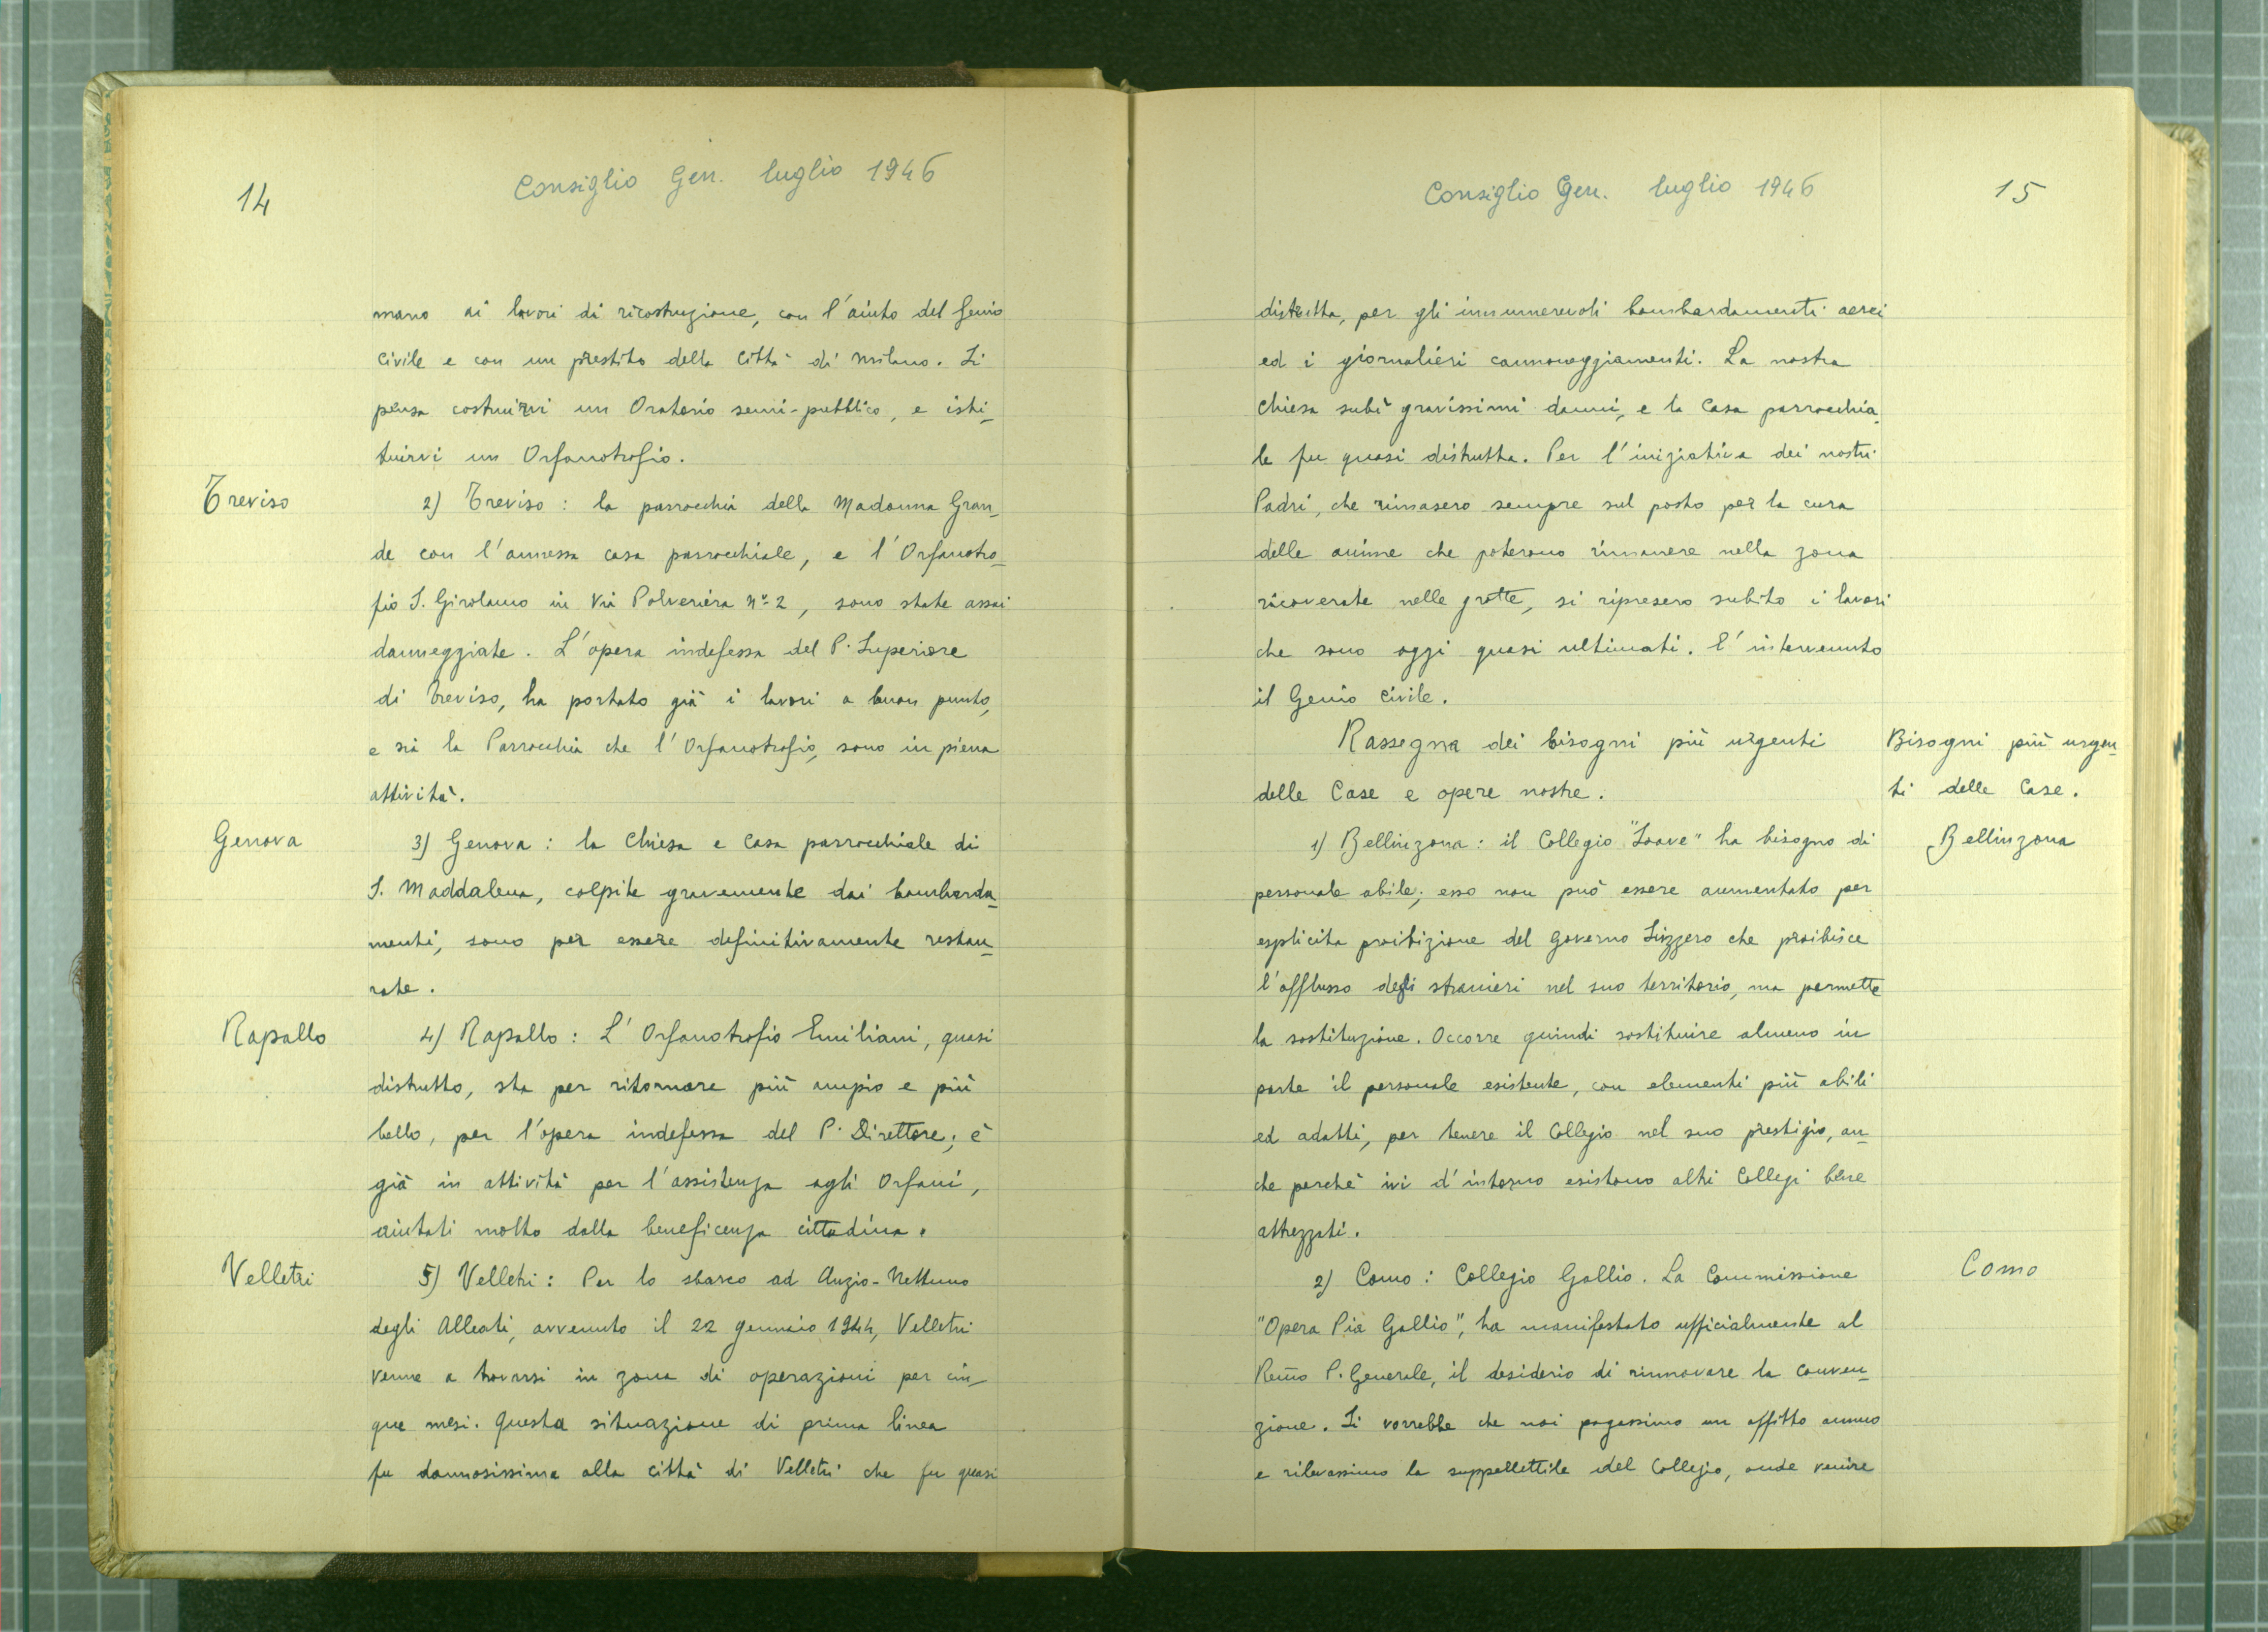 14
Consiglio Gen. luglio 1946
mano ai lavori di ricostruzione, con l'aiuto del Genio
Civile e con un prestito della Città di Milano. Si
pensa costruirvi un Oratorio semi-pubblico, e isti-
tuirvi un Orfanotrofio.
Treviso
2) Treviso: la parrocchia della Madonna Gran-
de con l'annessa casa parrocchiale, e l'Orfanotro-
fio S. Girolamo in Via Polveriera Nº 2, sono state assai
danneggiate. L'opera indefessa del P. Superiore
di Treviso, ha portato già i lavori a buon punto,
e sia la Parrocchia che l'Orfanotrofio, sono in piena
attività.
Genova
3) Genova: la Chiesa e Casa parrocchiale di
S. Maddalena, colpite gravemente dai bombarda-
menti, sono per essere definitivamente restau-
rate.
Rapallo
4) Rapallo: L'Orfanotrofio Emiliani, quasi
distrutto, sta per ritornare più ampio e più
bello, per l'opera indefessa del P. Direttore; è
già in attività per l'assistenza agli Orfani,
aiutati molto dalla beneficenza cittadina.
Velletri
5) Velletri: Per lo sbarco ad Anzio-Nettuno
degli Alleati, avvenuto il 22 gennaio 1944, Velletri
venne a trovarsi in zona di operazioni per cin-
que mesi. Questa situazione di prima linea
fu dannosissima alla città di Velletri che fu quasi
Consiglio Gen. luglio 1946
15
distrutta, per gli innumerevoli bombardamenti aerei
ed i giornalieri cannoneggiamenti. La nostra
Chiesa subì gravissimi danni, e la Casa parrocchia-
le fu quasi distrutta. Per l'iniziativa dei nostri
Padri, che rimasero sempre sul posto per la cura
delle anime che poterono rimanere nella zona
ricoverate nelle grotte, si ripresero subito i lavori
che sono oggi quasi ultimati. E' intervenuto
il Genio Civile.
Rassegna dei bisogni più urgenti
delle Case e opere nostre.
Bisogni più urgen-
ti delle Case.
Bellinzona
1) Bellinzona: il Collegio "Soave" ha bisogno di
personale abile; esso non può essere aumentato per
esplicita proibizione del Governo Svizzero che proibisce
l'afflusso degli stranieri nel suo territorio, ma permette
la sostituzione. Occorre quindi sostituire almeno in
parte il personale esistente, con elementi più abili
ed adatti, per tenere il Collegio nel suo prestigio, an-
che perchè ivi d'intorno esistono altri Collegi bene
attrezzati.
Como
2) Como: Collegio Gallio. La Commissione
"Opera Pia Gallio", ha manifestato ufficialmente al
Rev̄mo P. Generale, il desiderio di rinnovare la conven-
zione. Si vorrebbe che noi pagassimo un affitto annuo
e rilevassimo la suppellettile del Collegio, onde venire